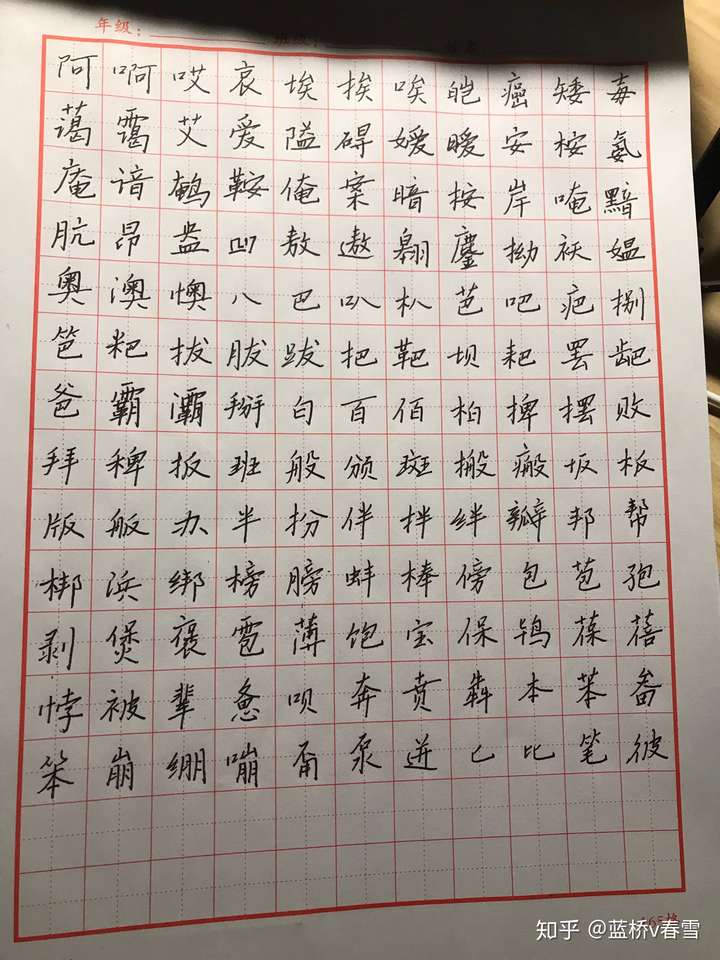 年级：
阿啊哎哀埃挨唉皑癌矮毐
蔼霭艾爱隘碍嫒暧安桉氨
庵谙鹌鞍俺案暗按岸唵黯
肮昂盎凹敖遨翱鏖拗袄媪
奥澳懊八巴叭朳芭吧疤捌
笆粑拔胈跋把靶坝耙罢龅
爸霸灞掰白百佰柏捭摆败
拜稗扳班般颁斑搬瘢坂板
版舨办半扮伴拌绊瓣邦帮
梆浜绑榜膀蚌棒傍包苞孢
剥煲褒雹薄饱宝保鸨葆蓓
悖被辈惫呗奔贲犇本苯畚
笨崩绷嘣甭泵迸匕比笔彼
知乎 @蓝桥v春雪